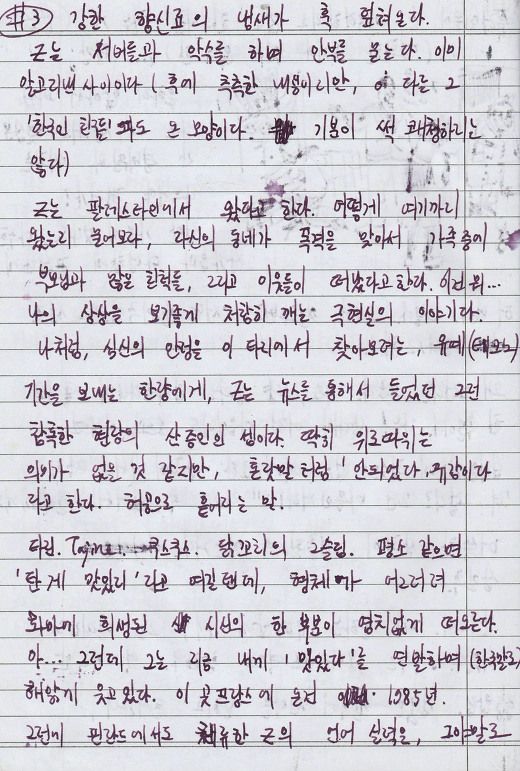 #3 강한 향신료의 냄새가 훅 덮쳐온다.
그는 서버들과 악수를 하며 안부를 묻는다. 이미
알고지낸 사이이다 (후에 추측한 내용이지만, 다들 그
'한국인 친구들' 과도 온 모양이다. 기분이 썩 쾌청하지는
않다)
그는 팔레스타인에서 왔다고 한다. 어떻게 여기까지
왔는지 물어보자, 자신의 동네가 폭격을 맞아서 가족중에
부모님과 많은 친척들, 그리고 이웃들이 떠났다고 한다. 이건 뭐...
나의 상상을 보기좋게 처참히 깨는 극현실의 이야기다.
나처럼, 심신의 안정을 이 타지에서 찾아보려는, 유예
기간을 보내는 한량에게, 그는 뉴스를 통해서 들었던 그런
참혹한 현장의 산증인인 셈이다. 딱히 위로따위는
의미가 없을 것 같지만, 혼잣말처럼 '안되었다, 유감이다'
라고 한다. 허공으로 흩어지는 말.
타진. Tajine. 쿠스쿠스. 닭꼬치의 그슬림. 평소 같으면
'탄게 맛있지' 라고 여길텐데, 형체가 어그러져
화마에 희생된 시신의 한 부분이 염치없게 떠오른다.
아... 그런데 그는 지금 내게 '맛있다'를 연발하며 (한국말로)
해맑게 웃고있다. 이 곳 프랑스에 온건 1985년.
그런데 핀란드에서도 체류한 그의 언어 실력은, 그야말로